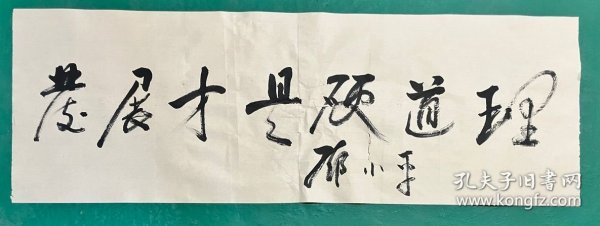 發展才是硬道理
鄧小平
孔夫子旧书网
www.kongfz.com